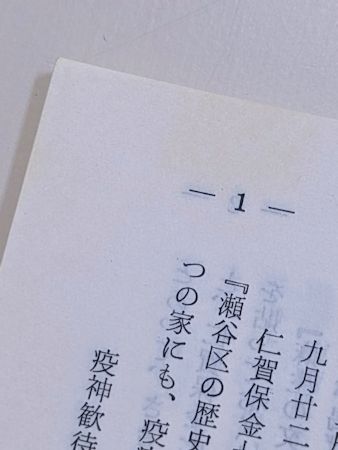 — 1 —
九月廿二
仁賀保金
『瀬谷区の歴史
つの家にも、疫
疫神歓待